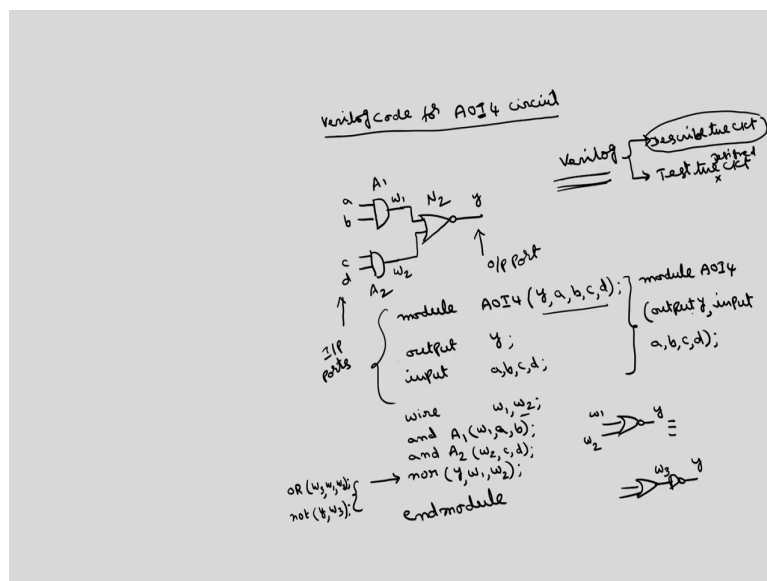 Verilog code for AOI4 circuit
Verilog
Describe the ckt
Test the designed ckt
x
A1
a
b
w1
N2
y
c
d
w2
A2
O/P port
I/P
ports
module AOI4 (y,a,b,c,d);
output y;
input a,b,c,d;
module AOI4
(output y, input
a,b,c,d);
wire w1,w2;
and A1(w1,a,b);
and A2 (w2,c,d);
nor (y,w1,w2);
endmodule
OR (w3,w1,w2);
not (y,w3);
w1
w2
y
w3
y